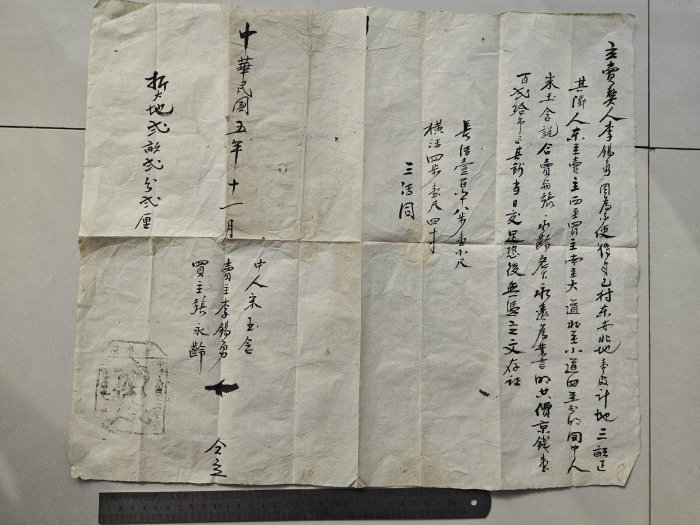 立賣契人李錫勇因為不便將自己村东南北地一段計地三畝正
其隣人东至賣主西至買主南至大道北至小道四至分明同中人
宋玉舍說合賣與張永齡名下永遠為業言明共價京錢壹
百弍拾千正其錢当日交足恐後無憑立文存证
長活壹百八步小尺
橫活四步壹尺四寸
三活同
中華民國五年十一月
中人宋玉舍
賣主李錫勇
買主張永齡
仝立
折大地弍畝弍分弍厘